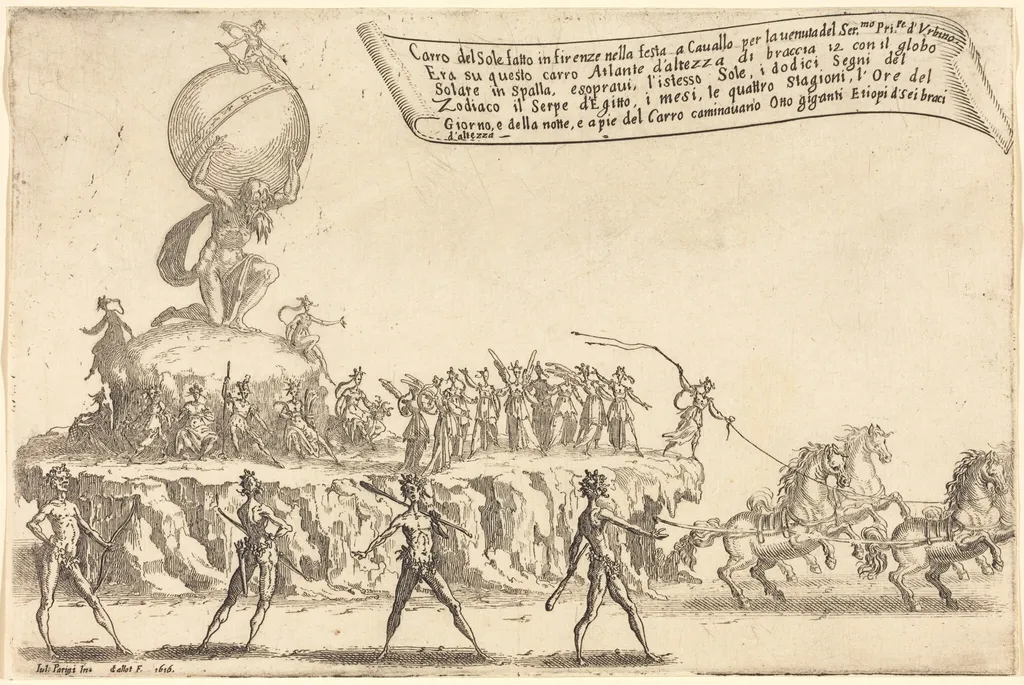 Carro del Sole fatto in firenze nella festa a Cauallo per la uenuta del Ser.mo Pri.pe d'Vrbino
Era su questo carro Atlante d'altezza di braccia 12 con il globo
Solare in spalla, esopraui, l'istesso Sole, i dodici Segni del
Zodiaco il Serpe d'Egitto, i mesi, le quattro Stagioni, l'Ore del
Giorno, e della notte, e a pie del Carro caminauano Otto giganti Etiopi d'sei braci
d'altezza
Iul. Parigi In. Callot F. 1616.